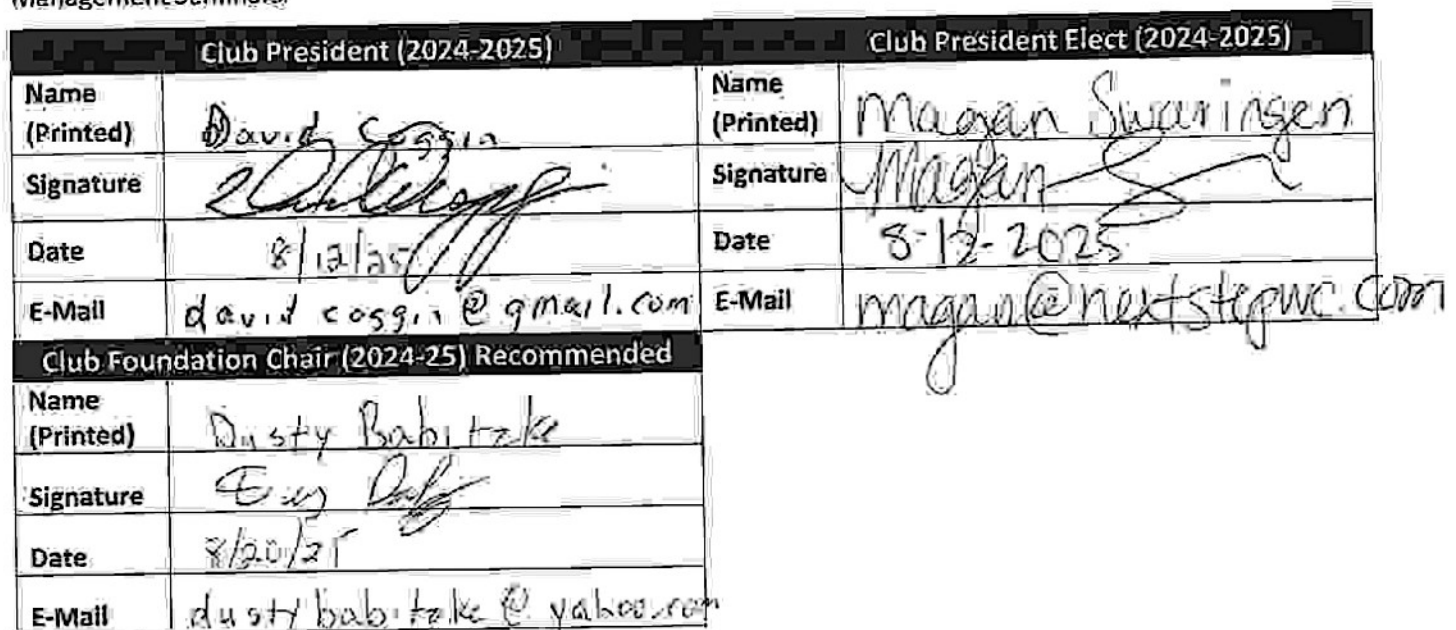 Management Seminars.
Club President (2024-2025)
Name
(Printed)
David Coggin
Signature
Date
8/12/25
E-Mail
david coggin@gmail.com
Club President Elect (2024-2025)
Name
(Printed)
Magan Swaringen
Signature
Magan
Date
8-12-2025
E-Mail
magan@nextstepwc.com
Club Foundation Chair (2024-25) Recommended
Name
(Printed)
Dusty Babitzke
Signature
Date
8/20/25
E-Mail
dustybabitzke@yahoo.com